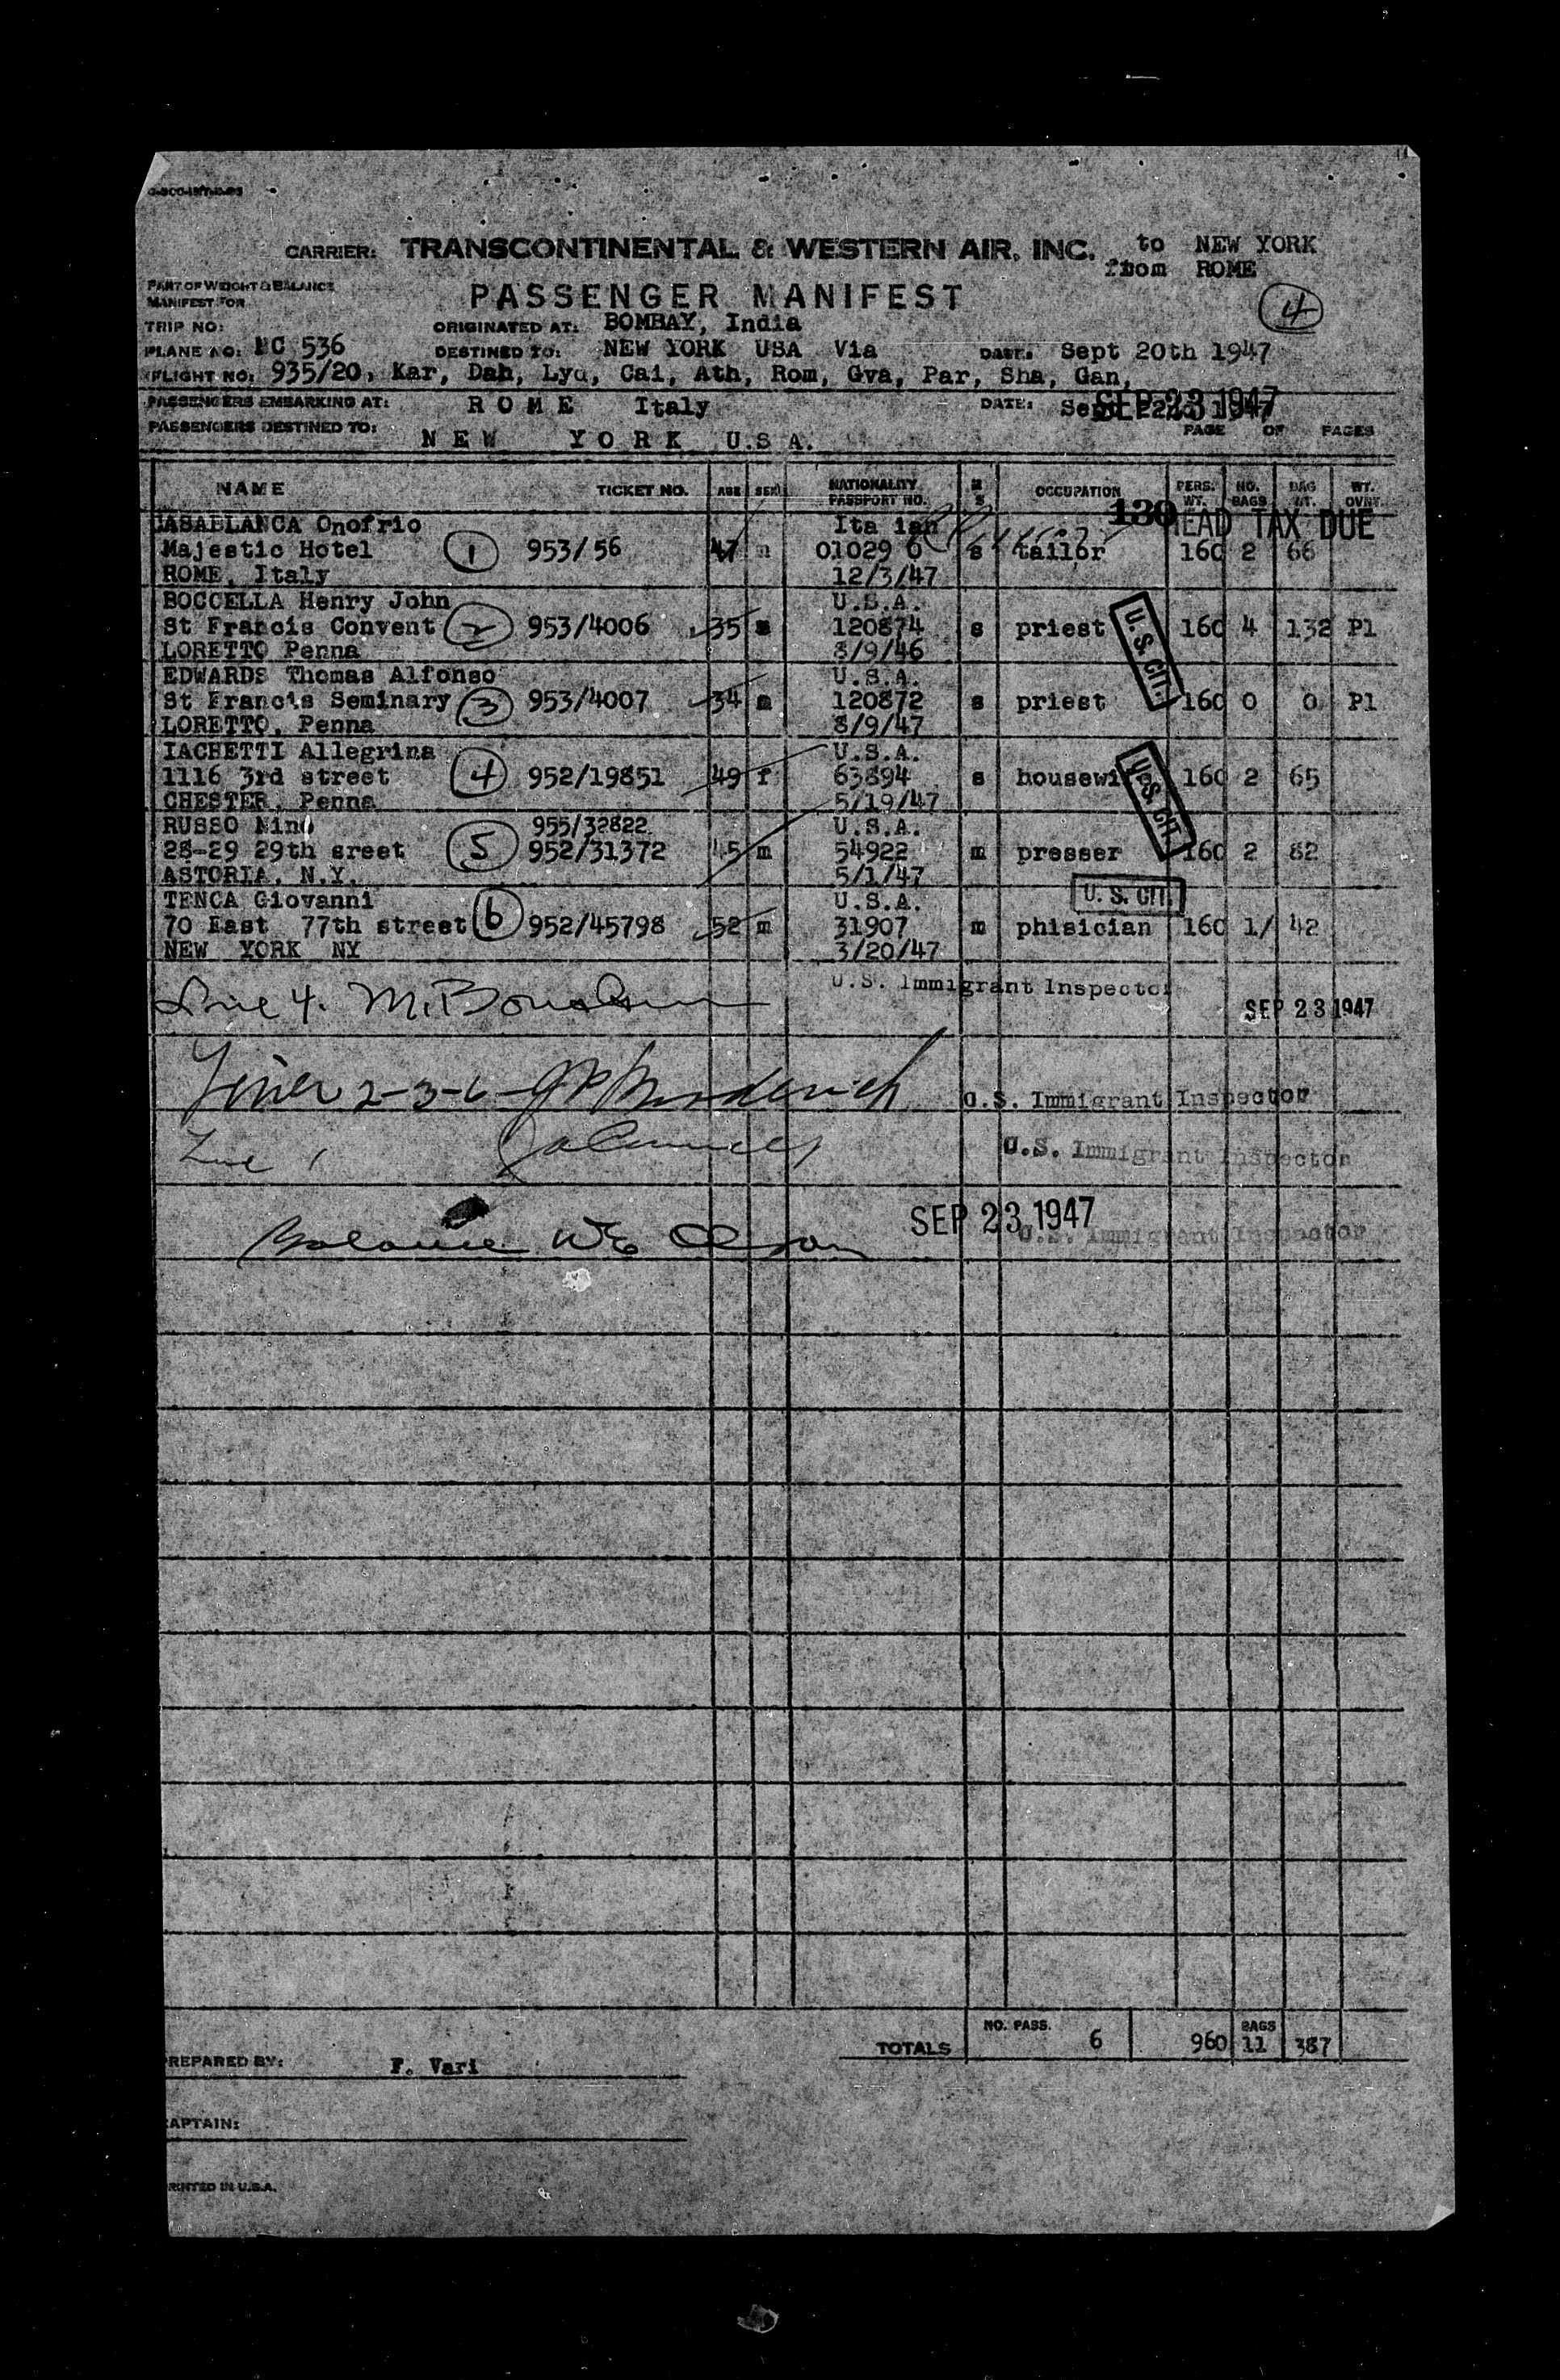 CARRIER: TRANSCONTINENTAL & WESTERN AIR, INC. to NEW YORK
from ROME
PART OF WEIGHT & BALANCE
MANIFEST FOR
PASSENGER MANIFEST
4
TRIP NO: ORIGINATED AT: BOMBAY, India
PLANE NO: NC 536 DESTINED TO: NEW YORK USA Via DATE: Sept 20th 1947
FLIGHT NO: 935/20, Kar, Dah, Lyd, Cai, Ath, Rom, Gva, Par, Sha, Gan,
PASSENGERS EMBARKING AT: ROME Italy DATE: SEP 23 1947
PASSENGERS DESTINED TO: NEW YORK U.S.A. PAGE OF PAGES
NAME TICKET NO. AGE SEX NATIONALITY PASSPORT NO. M S OCCUPATION PERS. WT. NO. BAGS BAG WT. WT. OVNT.
130 HEAD TAX DUE
CASABLANCA Onofrio Ita ian
Majestic Hotel 1 953/56 47 m 01029 6 s tailor 160 2 66
ROME, Italy 12/3/47
BOCCELLA Henry John U.S.A.
St Francis Convent 2 953/4006 35 m 120874 s priest 160 4 132 Pl
LORETTO Penna 8/9/46
U.S. CIT.
EDWARDS Thomas Alfonso U.S.A.
St Francis Seminary 3 953/4007 34 m 120872 s priest 160 0 0 Pl
LORETTO, Penna 8/9/47
IACHETTI Allegrina U.S.A.
1116 3rd street 4 952/19851 49 f 63894 s housewi 160 2 65
CHESTER, Penna 5/19/47
U.S. CIT.
RUSSO Nino 955/32822 U.S.A.
28-29 29th sreet 5 952/31372 45 m 54922 m presser 160 2 82
ASTORIA, N.Y. 5/1/47
TENCA Giovanni U.S.A. U. S. CIT.
70 East 77th street 6 952/45798 52 m 31907 m phisician 160 1/ 42
NEW YORK NY 3/20/47
Line 4. U.S. Immigrant Inspector
SEP 23 1947
Lines 2-3-6 U.S. Immigrant Inspector
Line 1 U.S. Immigrant Inspector
SEP 23 1947
Balance W E Olson U.S. Immigrant Inspector
TOTALS NO. PASS. 6 960 BAGS 11 387
PREPARED BY: F. Vari
CAPTAIN:
PRINTED IN U.S.A.